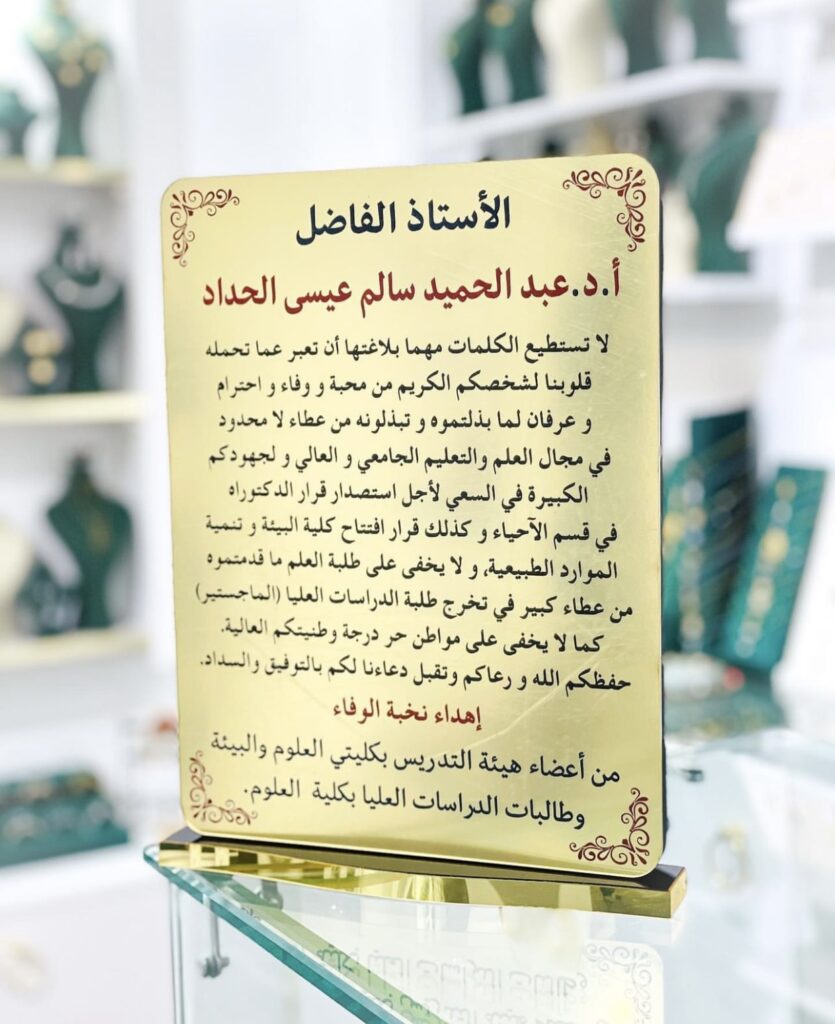 الأستاذ الفاضل
أ.د.عبد الحميد سالم عيسى الحداد
لا تستطيع الكلمات مهما بلاغتها أن تعبر عما تحمله
قلوبنا لشخصكم الكريم من محبة و وفاء و احترام
و عرفان لما بذلتموه و تبذلونه من عطاء لا محدود
في مجال العلم والتعليم الجامعي و العالي و لجهودكم
الكبيرة في السعي لأجل استصدار قرار الدكتوراه
في قسم الآحياء و كذلك قرار افتتاح كلية البيئة و تنمية
الموارد الطبيعية، و لا يخفى على طلبة العلم ما قدمتموه
من عطاء كبير في تخرج طلبة الدراسات العليا (الماجستير)
كما لا يخفى على مواطن حر درجة وطنيتكم العالية.
حفظكم الله و رعاكم وتقبل دعاءنا لكم بالتوفيق والسداد.
إهداء نخبة الوفاء
من أعضاء هيئة التدريس بكليتي العلوم والبيئة
وطالبات الدراسات العليا بكلية العلوم.